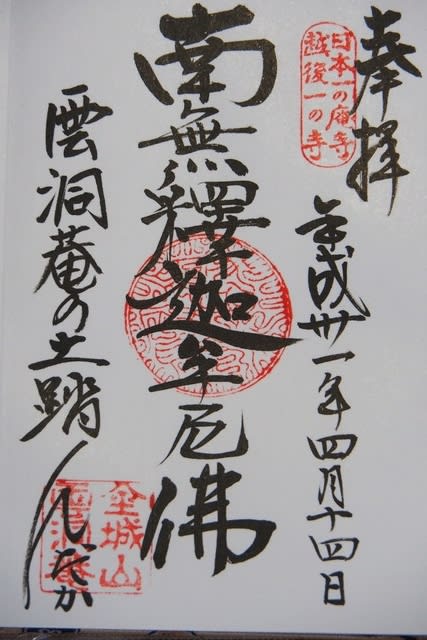 奉拝
日本一の庵寺
越後一の寺
平成卅一年四月十四日
南無釋迦牟尼佛
雲洞菴の土踏んだか
金城山
雲洞菴